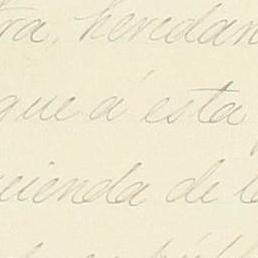 tra, heredan
que á esta
cienda de l